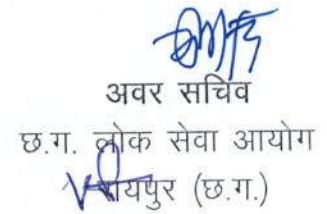 अवर सचिव
छ.ग. लोक सेवा आयोग
रायपुर (छ.ग.)